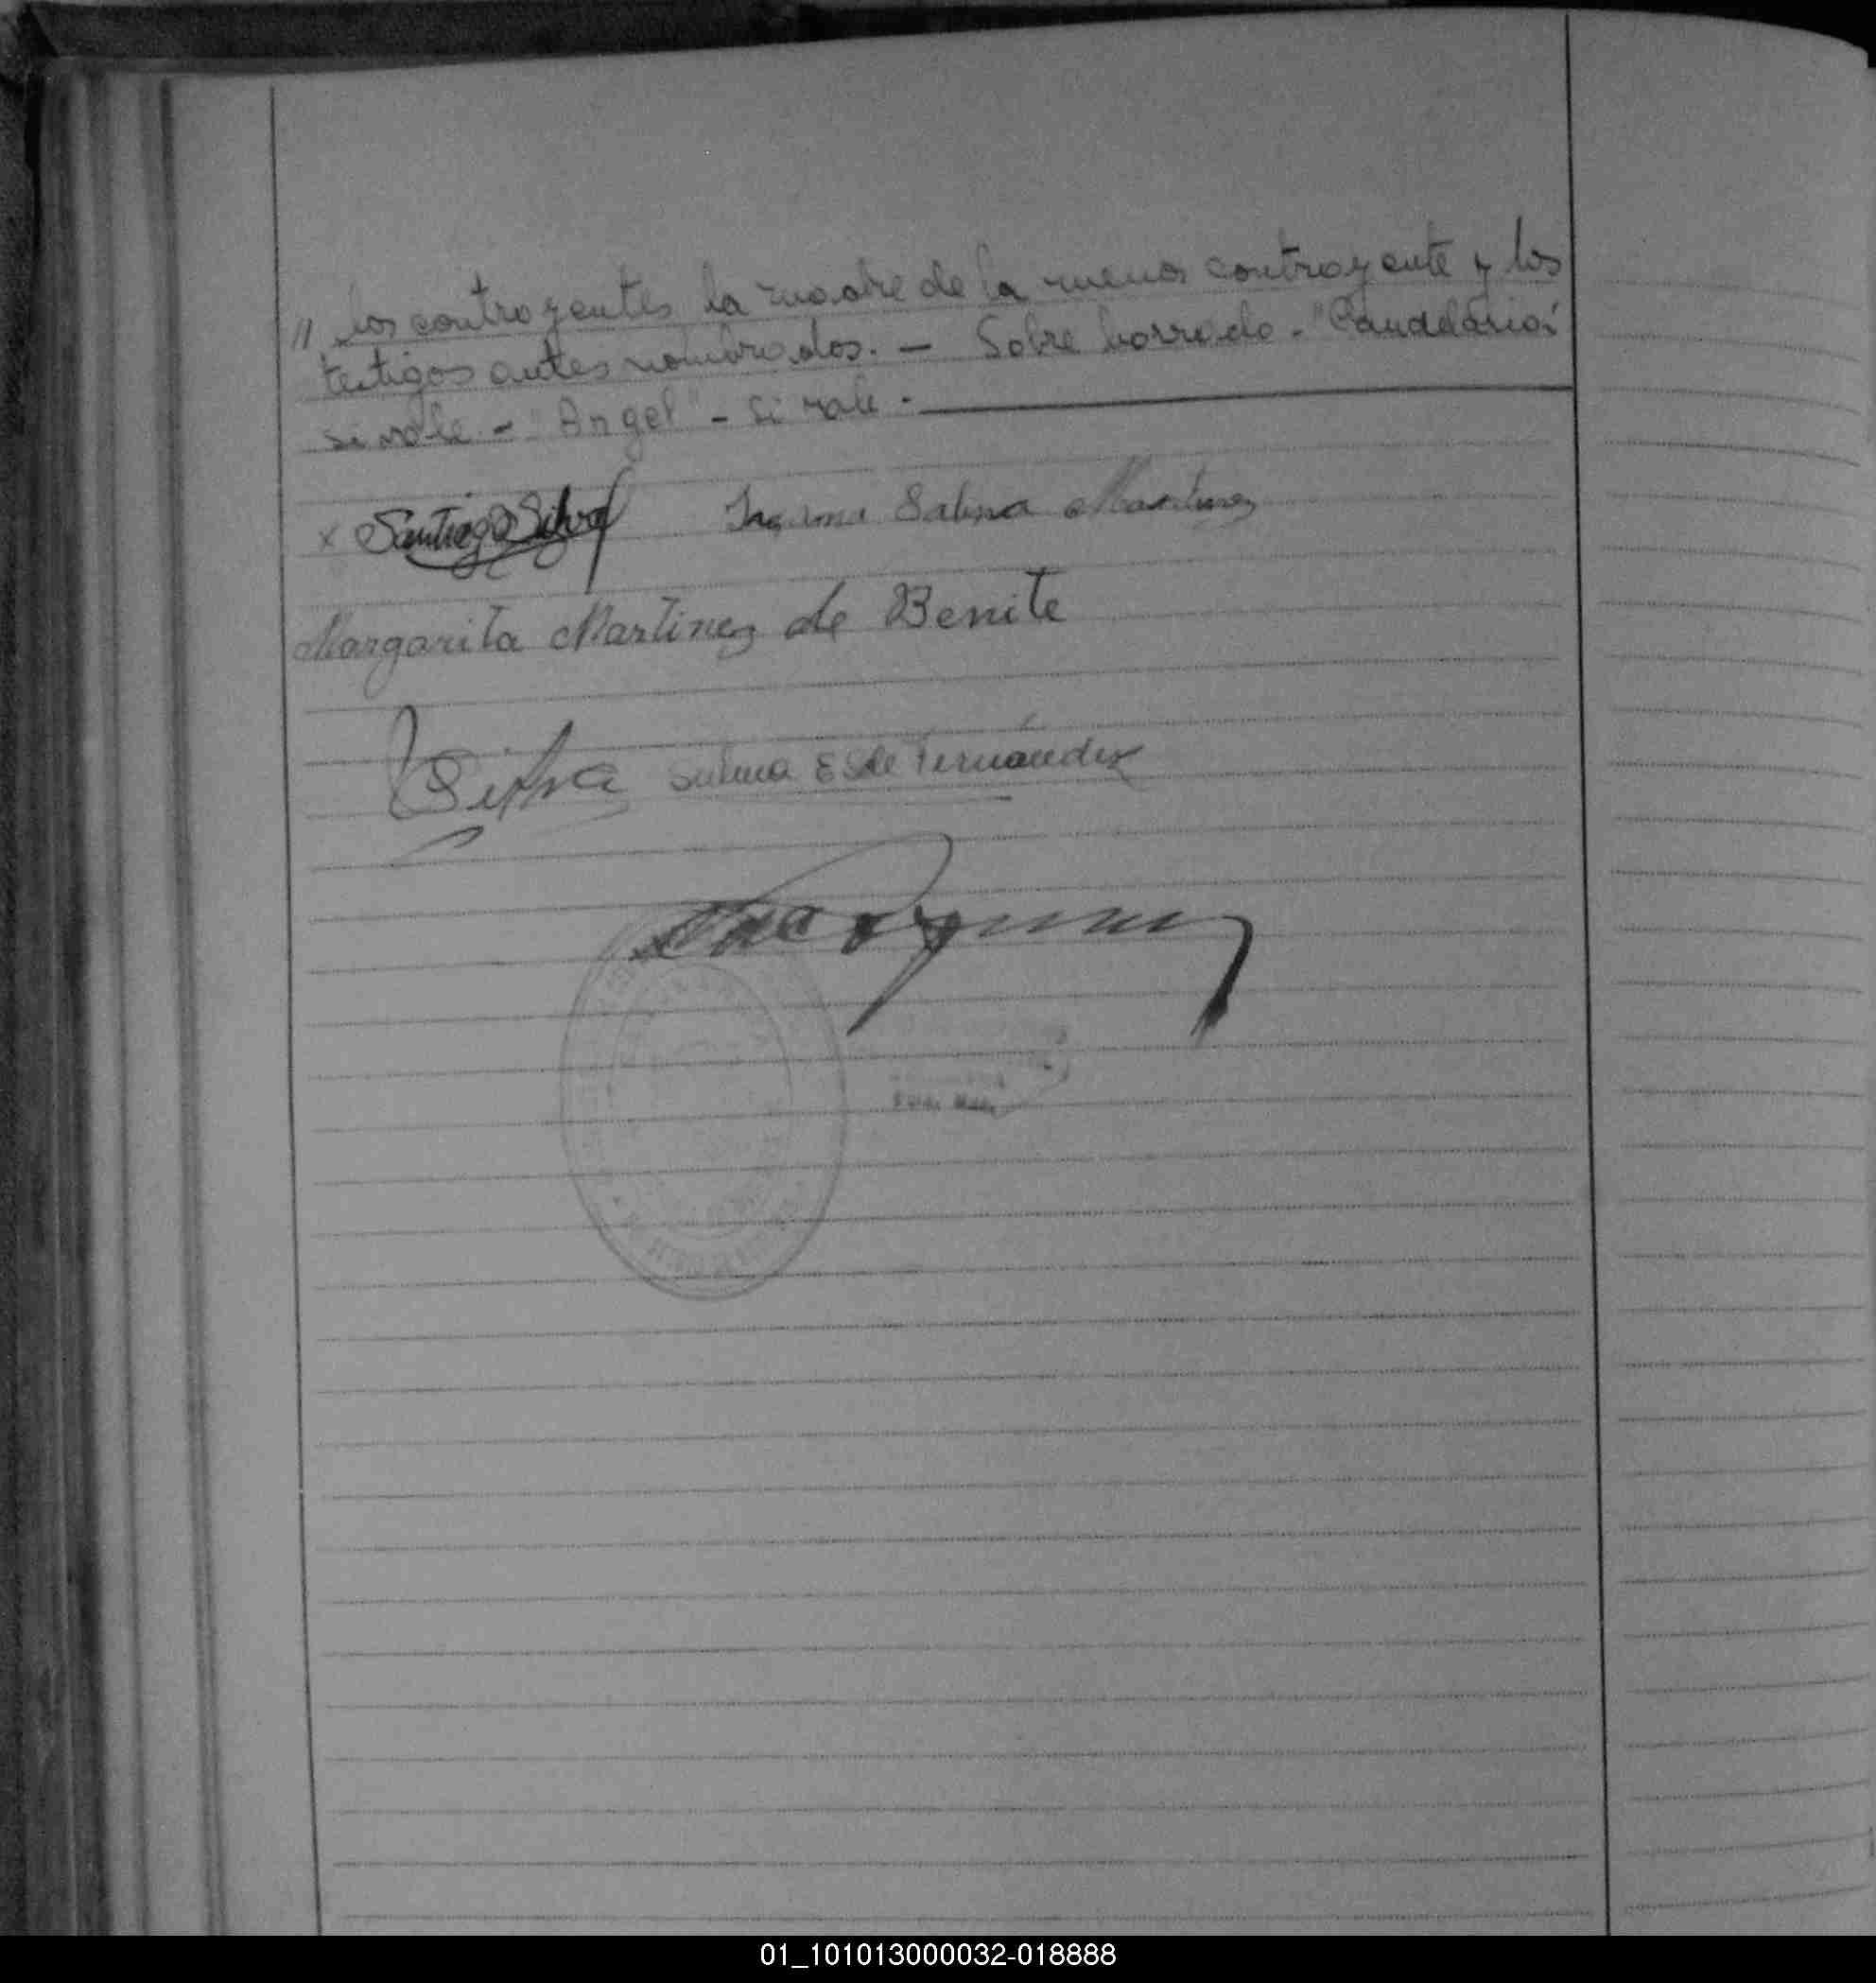 // los contrayentes la madre de la menor contrayente y los
testigos antes nombrados. — Sobre borrado - "Candelario"
si vale - "Angel" - si vale .
x Santiago Silva Salina Martinez
Margarita Martinez de Benite
Silva Sulma E. de Fernández
01_101013000032-018888